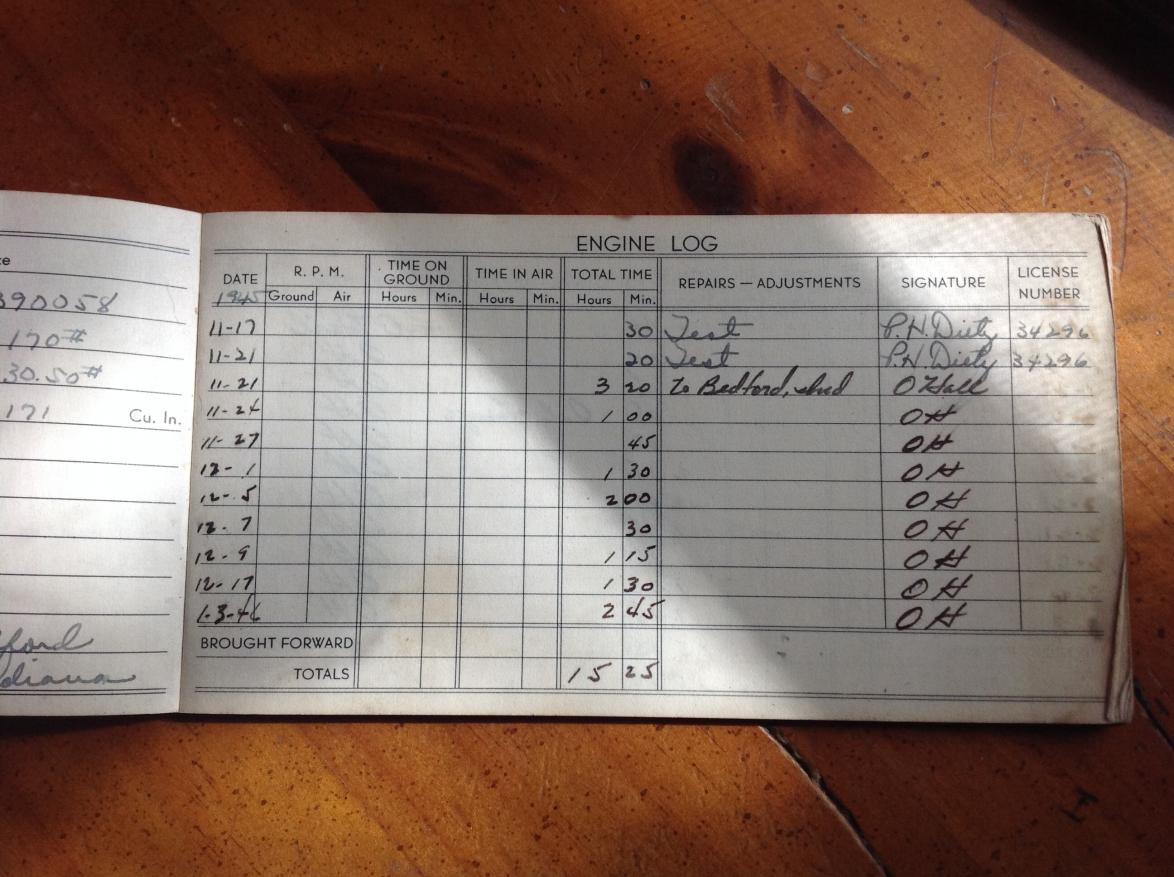 ENGINE LOG
DATE R. P. M. TIME ON GROUND TIME IN AIR TOTAL TIME REPAIRS — ADJUSTMENTS SIGNATURE LICENSE NUMBER
1945 Ground Air Hours Min. Hours Min. Hours Min.
11-17 30 Test P.H. Diety 34296
11-21 20 Test P.H. Diety 34296
11-21 3 20 to Bedford, Ind O Hall
11-24 1 00 OH
11-27 45 OH
12-1 1 30 OH
12-5 2 00 OH
12-7 30 OH
12-9 1 15 OH
12-17 1 30 OH
1-3-46 2 45 OH
BROUGHT FORWARD
TOTALS 15 25
390058
170#
30.50#
171 Cu. In.
ford
diana